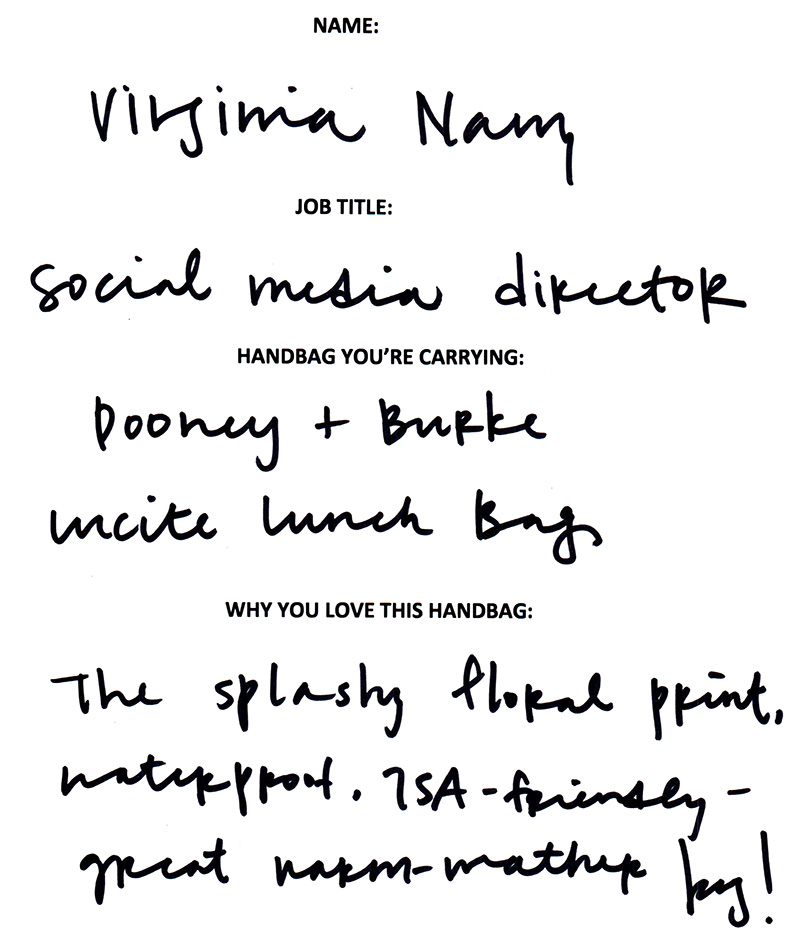 NAME:
Virginia Nam
JOB TITLE:
social media director
HANDBAG YOU'RE CARRYING:
Dooney + Burke
lucite lunch Bag
WHY YOU LOVE THIS HANDBAG:
The splashy floral print,
waterproof. TSA-friendly -
great warm-weather bag!